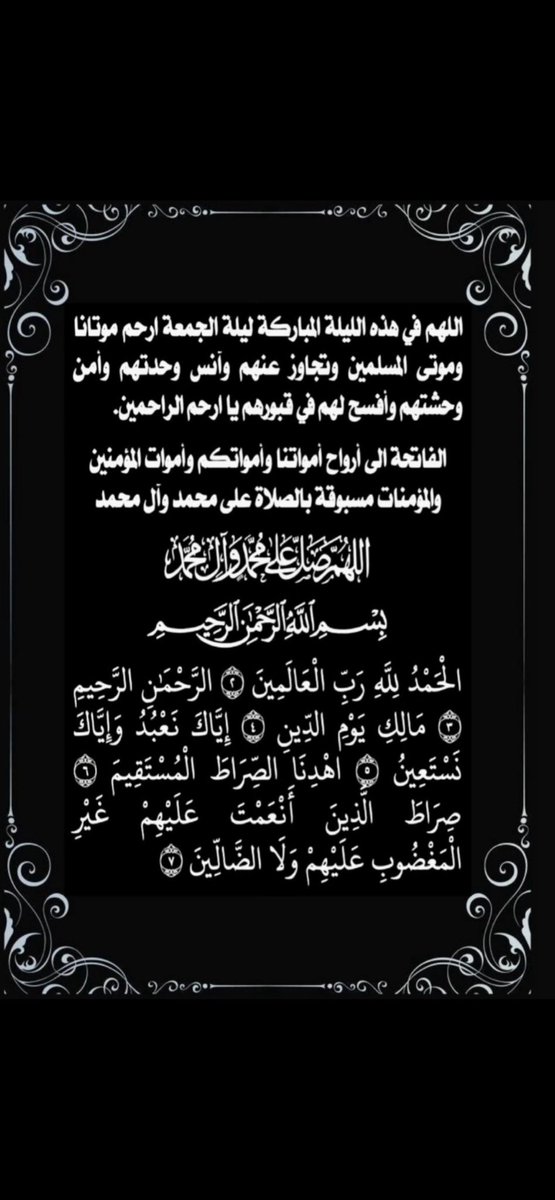 اللهم في هذه الليلة المباركة ليلة الجمعة ارحم موتانا
وموتى المسلمين وتجاوز عنهم وآنس وحدتهم وأمن
وحشتهم وأفسح لهم في قبورهم يا ارحم الراحمين.
الفاتحة الى أرواح أمواتنا وأمواتكم وأموات المؤمنين
والمؤمنات مسبوقة بالصلاة على محمد وآل محمد
اللهم صل على محمد وآل محمد
بسم الله الرحمن الرحيم
الْحَمْدُ لِلَّهِ رَبِّ الْعَالَمِينَ ٢ الرَّحْمَٰنِ الرَّحِيمِ
٣ مَالِكِ يَوْمِ الدِّينِ ٤ إِيَّاكَ نَعْبُدُ وَإِيَّاكَ
نَسْتَعِينُ ٥ اهْدِنَا الصِّرَاطَ الْمُسْتَقِيمَ ٦
صِرَاطَ الَّذِينَ أَنْعَمْتَ عَلَيْهِمْ غَيْرِ
الْمَغْضُوبِ عَلَيْهِمْ وَلَا الضَّالِّينَ ٧